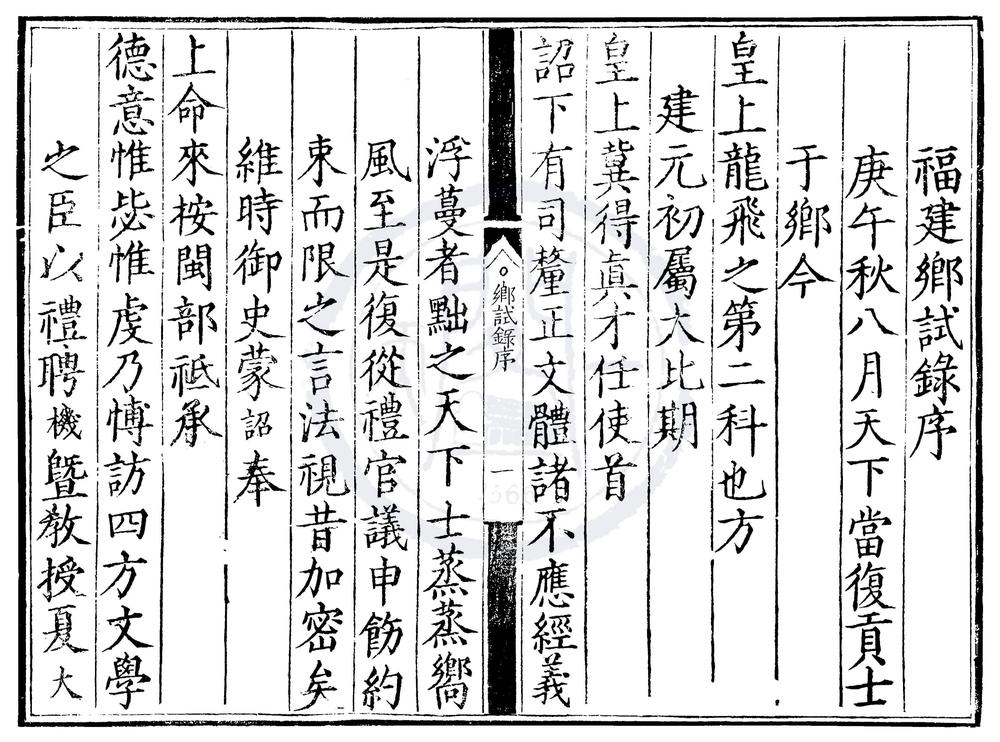 福建鄉試錄序
庚午秋八月天下當復貢士
于鄉今
皇上龍飛之第二科也方
建元初屬大比期
皇上冀得眞才任使首
詔下有司釐正文體諸不應經義
鄉試錄序
一
浮蔓者黜之天下士蒸蒸嚮
風至是復從禮官議申飭約
束而限之言法視昔加密矣
維時御史蒙詔奉
上命來按閩部祗承
德意惟毖惟虔乃愽訪四方文學
之臣以禮聘機曁敎授夏大